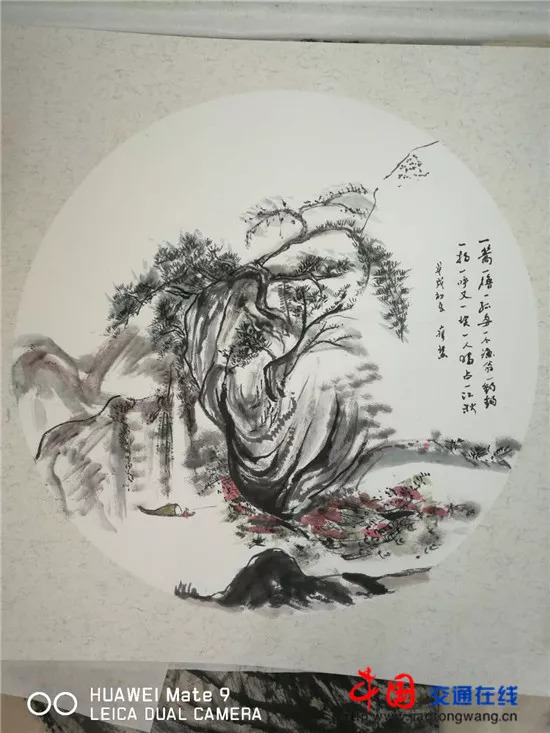 一篙一橹一孤舟一个渔翁一钓钩
一拍一呼又一笑一人独占一江秋
戊戌初冬
HUAWEI Mate 9
LEICA DUAL CAMERA
中国 交通在线
http://www.jiaotongwang.cn